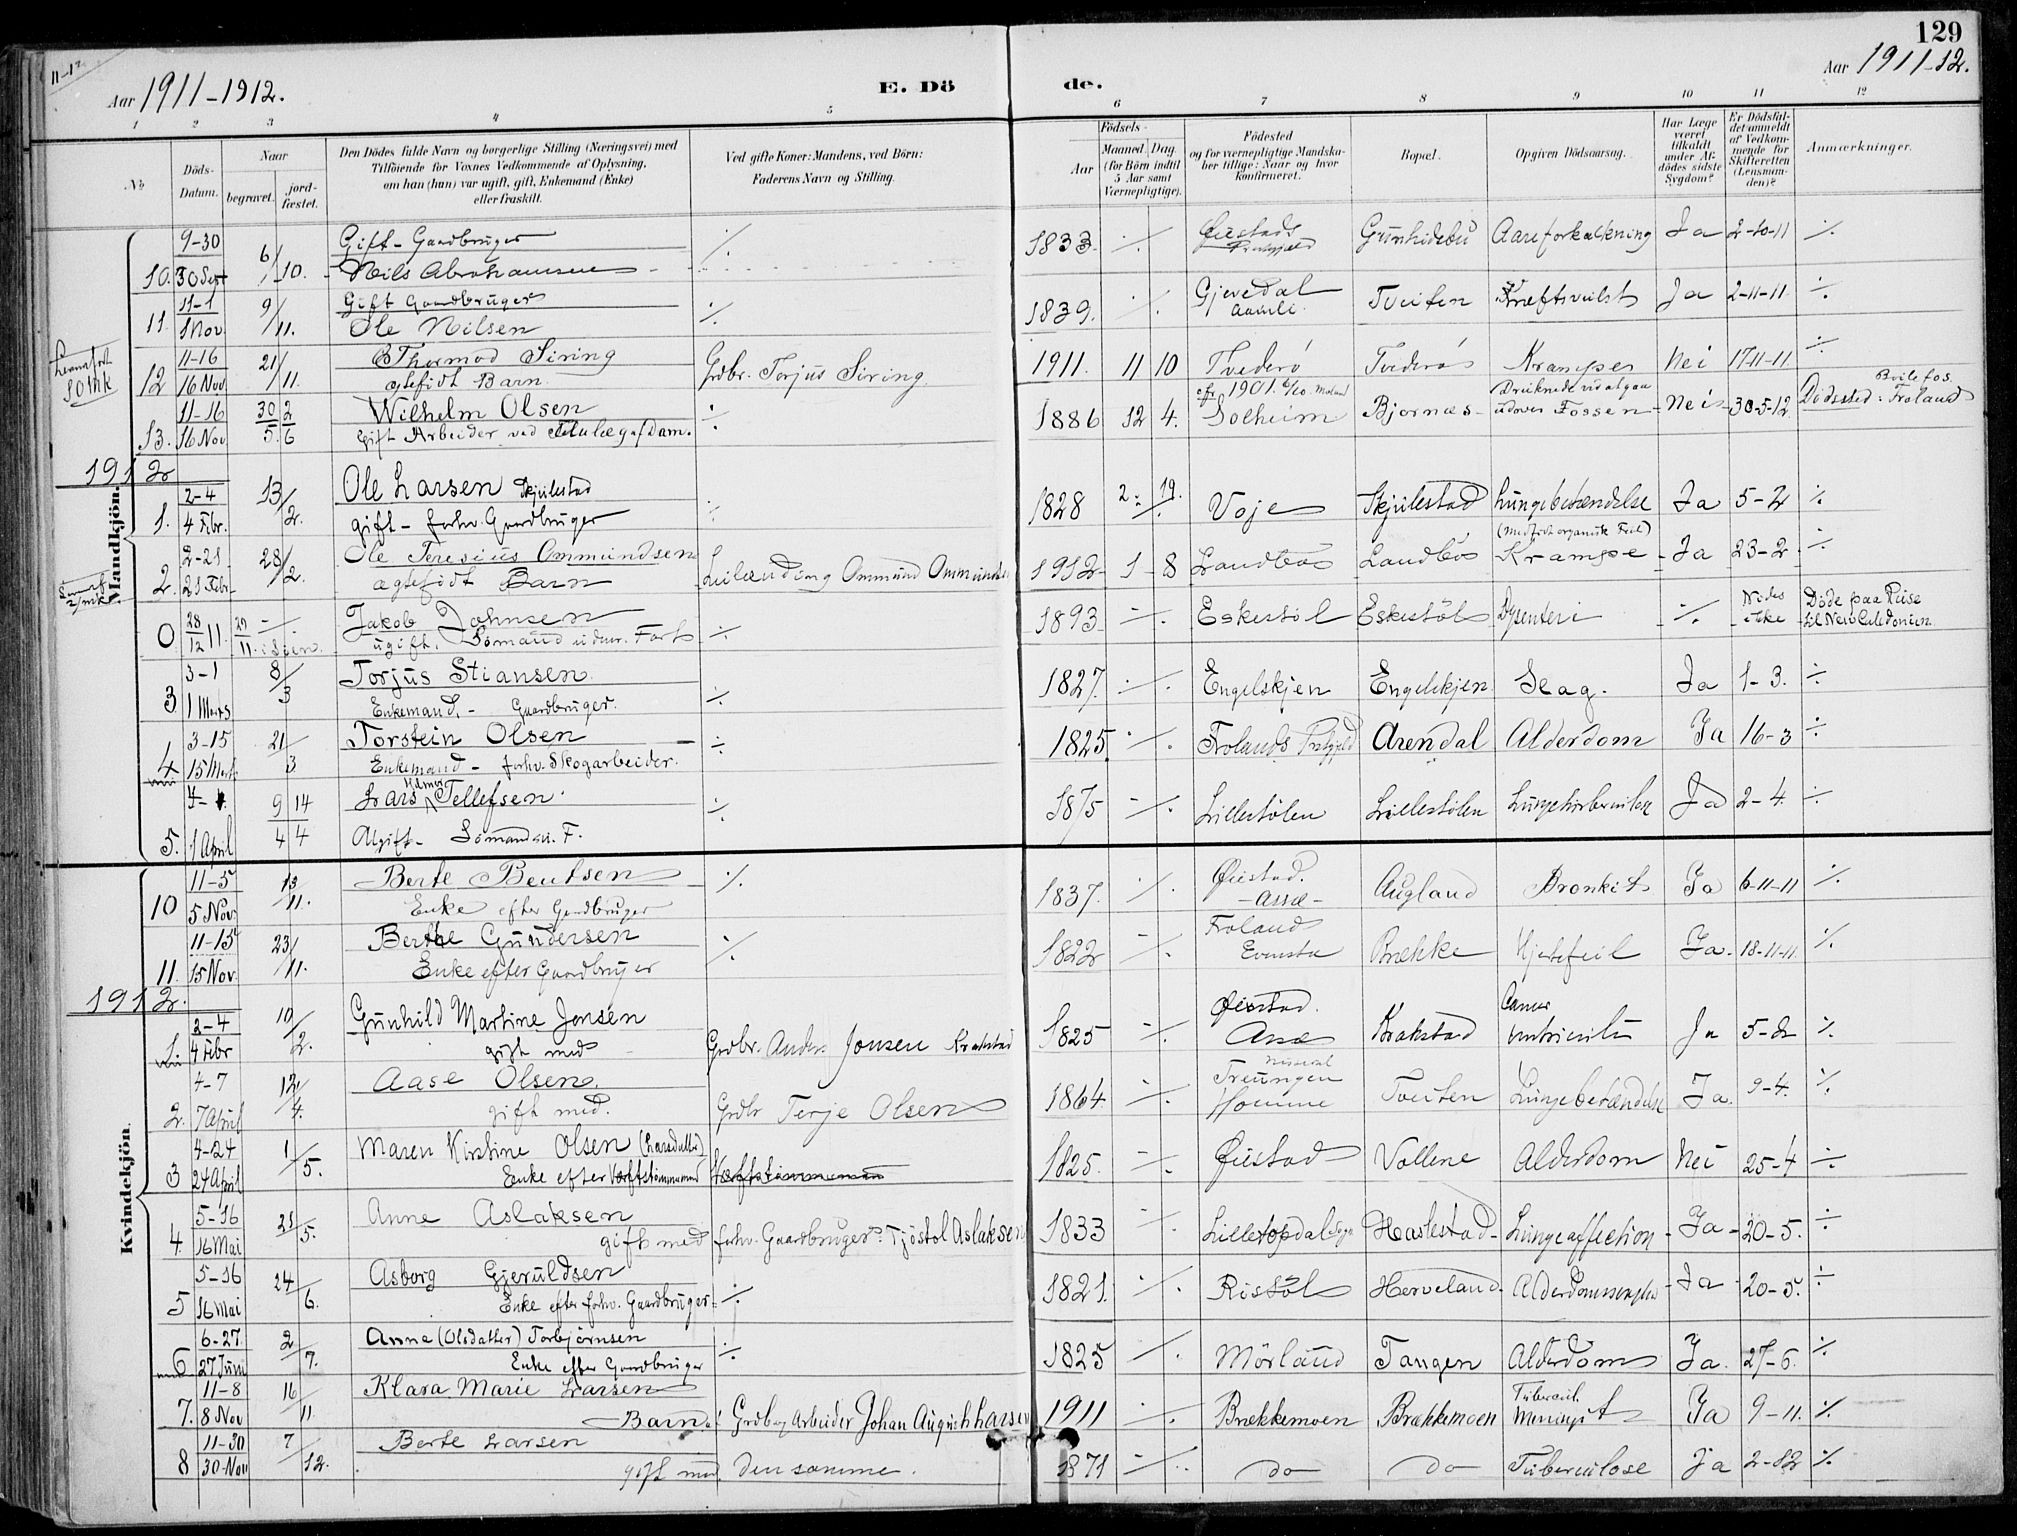 129
11-12
Aar 1911-1912.
E. Dö de.
Aar 1911-12.
1 2 3 4 5 6 7 8 9 10 11 12
No
Döds-Datum.
Naar begravet. jordfæstet.
Den Dödes fulde Navn og borgerlige Stilling (Næringsvei) med Tilföiende for Voxnes Vedkommende af Oplysning, om han (hun) var ugift, gift, Enkemand (Enke) eller fraskilt.
Ved gifte Koner: Mandens, ved Börn: Faderens Navn og Stilling.
Födsels-
Aar Maaned. Dag (for Börn indtil 5 Aar samt Værnepligtige).
Födested og for værnepligtige Mandskaber tillige: Naar og hvor konfirmeret.
Bopæl.
Opgiven Dödsaarsag.
Har Læge været tilkaldt under Afdödes sidste Sygdom?
Er Dödsfaldet anmeldt af Vedkommende for Skifteretten (Lensmanden)?
Anmærkninger.
Mandkjön.
10. 9-30 30 Sept 6/10. Gift - Gaardbruger Nils Abrahamsen ./. 1833. ./. Øiestads Præstgjeld Aareforkalkning Ja 2-10-11 ./.
11. 11-1 1 Nov. 9/11. Gift Gaardbruger Ole Nilsen ./. 1839. ./. Gjevedal Aamli. Tveiten Kræftsvulst Ja 2-11-11. ./.
50 Mk
12 11-16 16 Nov. 21/11. Thormod Siring ægtefødt Barn. Grdbr. Torjus Siring. 1911. 11 10 Tvederø Tvederø Kramper Nei 17-11-11. ./.
13. 11-16 16 Nov. 30/5. 2/6 Wilhelm Olsen Gift Arbeider ved af Dam. ./. 1886 12 4. 1901. 6/10. Moland Solheim Bjornæs Druknede ved at gaa udover Fossen Nei 30-5-12. Dödssted: Bøilefos Froland
1912
1. 2-4 4 Febr. 13/2. Ole Larsen Skjulestad gift - forhv. Gaardbruger ./. 1828 2. 19. Voje Skjulestad Lungebetændelse Ja 5-2 ./.
2. 2-21 21 Febr. 28/2. Ole Teresius Ommundsen ægtefødt Barn Leilænding Ommund Ommundsen 1912 1 8 Landbøs Landbøs (Medfödt organisk Feil) Krampe Ja 23-2 ./.
0 28/12 11. 29/11. i Søen. Jakob Johnsen ugift. Sømand udenr. Fart ./. 1893 ./. Eskestöl Eskestöl Dysenteri ./. Nodes ikke Döde paa Reise til New Caledonien
3 3-1 1 Marts 8/3 Torjus Stiansen. Enkemand. - Gaardbruger. ./. 1827. ./. Engelskjen Engelskjen Slag. Ja 1-3. ./.
4 3-15 15 Marts 21/3 Torstein Olsen Enkemand - forhv. Skogarbeider. ./. 1825. ./. Frolands Prstgjeld Arendal Alderdom Ja 16-3 ./.
5. 1 April 9/4 14/4 Lars Tellefsen. Ugift - Sömand u. F. ./. 1875 ./. Lillestölen Lillestölen Lungetuberkulose Ja 2-4. ./.
Kvindekjön.
10 11-5 5 Nov. 13/11. Berte Bentsen Enke efter Gardbruger ./. 1837. ./. Øiestad. - Assæ - Augland Bronkit Ja 6-11-11 ./.
11. 11-15 15 Nov. 23/11. Berthe Gundersen Enke efter Gaardbruger ./. 1822 ./. Froland Evensta Brække Hjertefeil Ja. 18-11-11. ./.
1912.
1. 2-4 4 Febr 10/2. Gunhild Martine Jonsen gift med Grdbr. Anders Jonsen Krakstad 1825 ./. Øiestad. Assæ Krakstad Cancer ventriculi Ja 5-2 ./.
2. 4-7 7 April 12/4. Aase Olsen. gift med. Grdbr Terje Olsen 1864. ./. Nissedal Treungen Homme Tveiten Lungebetændelse Ja. 9-4. ./.
3 4-24 24 April 1/5. Maren Kirstine Olsen (Larsdatter) Enke efter Værftstömmermand 1825. ./. Øiestad Vollene Alderdom Nei 25-4 ./.
4. 5-16 16 Mai 21/5. Anne Aslaksen gift med forhv. Gaardbruger: Tjöstol Aslaksen 1833 ./. Lilletopdal Haslestad Lungeaffection Ja 20-5. ./.
5 5-16 16 Mai 24/6. Asborg Gjeruldsen Enke efter forhv. Gaardbruger ./. 1821. ./. Ristöl Herveland. Alderdomssvaghed Ja 20-5. ./.
6 6-27. 27 Juni 2/7. Anna (Olsdatter) Torbjörnsen Enke efter Gaardbruger ./. 1825 ./. Mörland Tangen Alderdom Ja. 27-6. ./.
7. 11-8 8 Nov 16/11. Klara Marie Larsen Barn af Grdb og Arbeider Johan August Larsen 1911 ./. Brækkemoen Brækkemoen Tubercul. Meningit Ja 9-11. ./.
8 11-30 30 Nov 7/12. Berte Larsen gift med den samme. 1871 ./. do do Tuberculose Ja 2-12 ./.